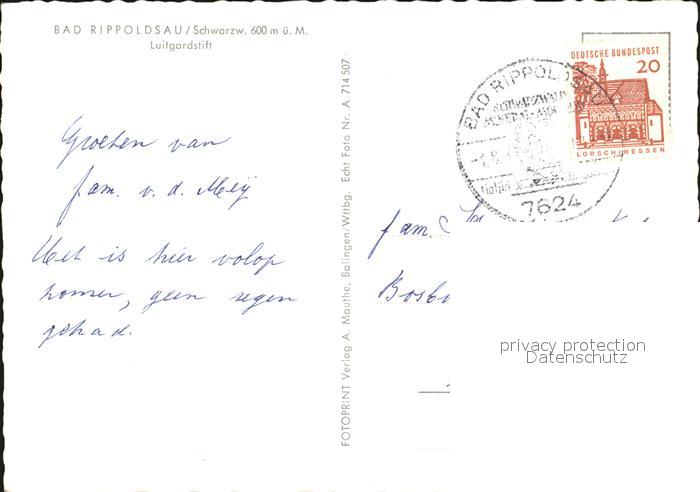 BAD RIPPOLDSAU/Schwarzw. 600 m ü. M.
Luitgardstift
Groeten van
fam. v. d. Meij
Het is hier volop
zomer, geen regen
gehad.
FOTOPRINT Verlag A. Mauthe, Balingen/Wttbg. Echt Foto Nr. A 714507
BAD RIPPOLDSAU
SCHWARZWALD
7624
DEUTSCHE BUNDESPOST
20
LORSCH/HESSEN
fam.
Bosbo
privacy protection
Datenschutz